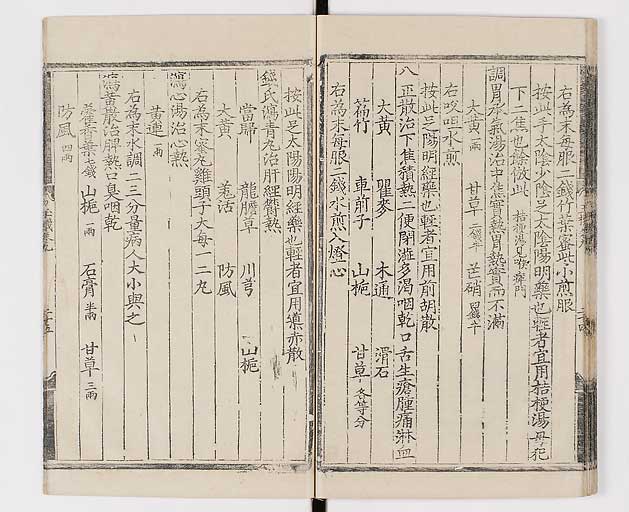 右為末每服二錢竹葉蜜些小煎服
按此手太陰少陰足太陰陽明藥也輕者宜用桔梗湯毋犯
下二焦也餘倣此 桔梗湯見 門
調胃承氣湯治中焦實熱胃熱實而不滿
大黄二兩 甘草 芒硝
右㕮咀水煎
按此足陽明經藥也輕者宜用前胡散
八正散治下焦積熱二便閉澁多渴咽乾口舌生瘡腫痛淋血
大黄 瞿麥 木通 滑石
萹竹 車前子 山梔 甘草各等分
右為末每服二錢水煎入燈心
按此足太陽陽明經藥也輕者宜用導赤散
錢氏瀉青丸治肝經鬱熱
當歸 龍膽草 川芎 山梔
大黄 羗活 防風
右為末蜜丸雞頭子大每一二丸
瀉心湯治心熱
黄連一兩
右為末水調二三分量病人大小與之
瀉黄散治脾熱口臭咽乾
藿香葉七錢 山梔一兩 石膏半兩 甘草三兩
防風四兩